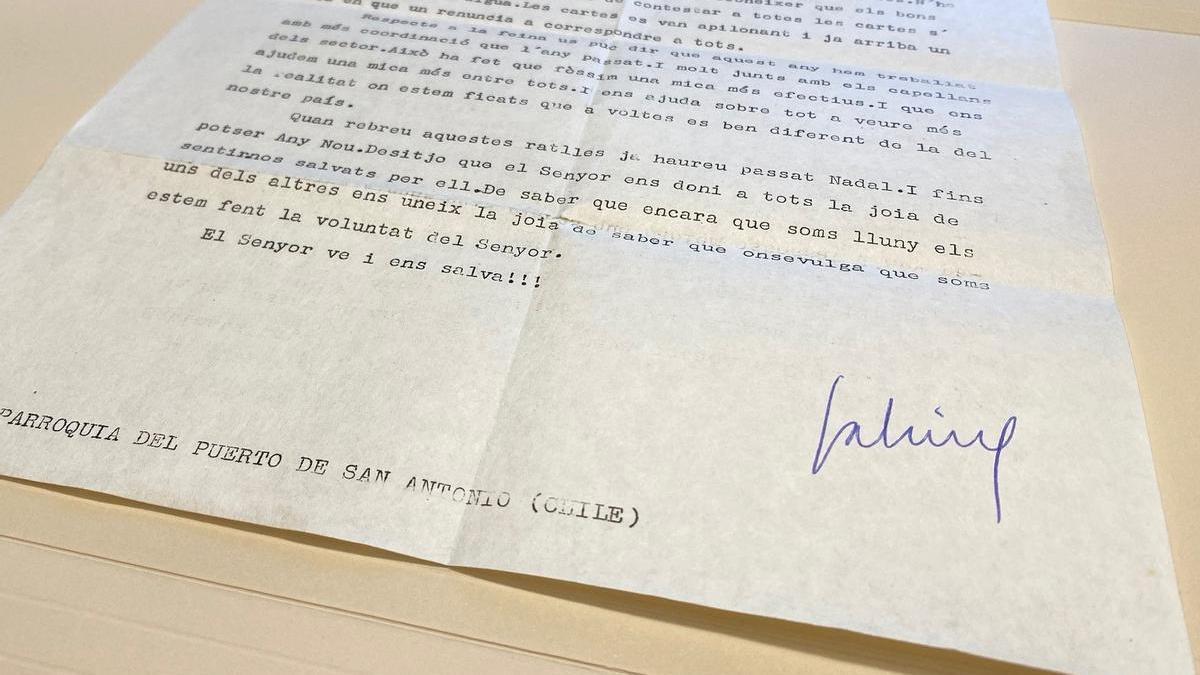 coneixer que els bons
contestar a totes les cartes s'
Les cartes es van apilonant i ja arriba un
en que un renuncia a correspondre a tots.
Respecte a la feina us puc dir que aquest any hem treballat
amb més coordinació que l'any passat.I molt junts amb els capellans
dels sector.Això ha fet que fòssim una mica més efectius.I que ens
ajudem una mica més entre tots.I ens ajuda sobre tot a veure més
la realitat on estem ficats que a voltes es ben diferent de la del
nostre país.
Quan rebreu aquestes ratlles ja haureu passat Nadal.I fins
potser Any Nou.Desitjo que el Senyor ens doni a tots la joia de
sentirnos salvats per ell.De saber que encara que soms lluny els
uns dels altres ens uneix la joia de saber que onsevulga que soms
estem fent la voluntat del Senyor.
El Senyor ve i ens salva!!!
PARROQUIA DEL PUERTO DE SAN ANTONIO (CHILE)